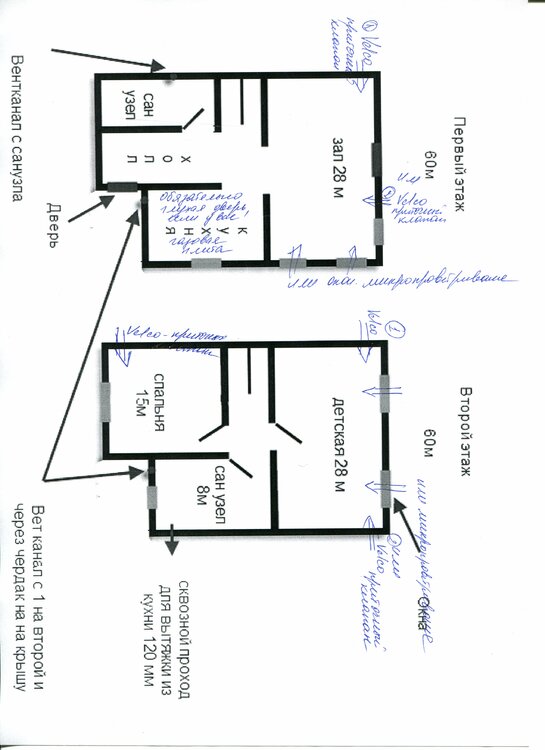 Первый этаж
60м
① Velco
приточный
клапан
сан
узел
холл
зал 28 м
кухня
обязательно
глухая дверь,
если у вас,
газовая
плита
или
② Velco
приточный
клапан
или окон. микропроветривание
Вентканал с санузла
Дверь
Второй этаж
60м
① Velco
Velco-приточн
спальня
15м
сан узел
8м
детская 28 м
или микропроветривание
② или
Velco
приточный
клапан
Окна
сквозной проход
для вытяжки из
кухни 120 мм
Вет канал с 1 на второй и
через чердак на на крышу